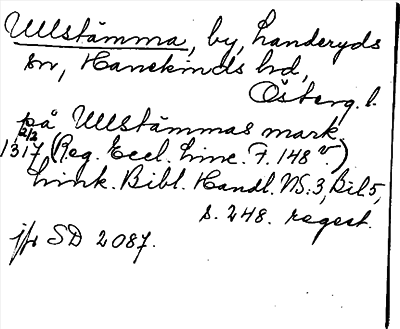 Ullstämma, by, Landeryds
sn, Hanekinds hd,
Österg. l.
på Ullstämmas mark.
2/2
1317 (Reg. Eccl. Linc. F. 148 v.)
Link. Bibl. Handl. NS:3, Bil. 5,
s. 248. regest.
jfr SD 2087.